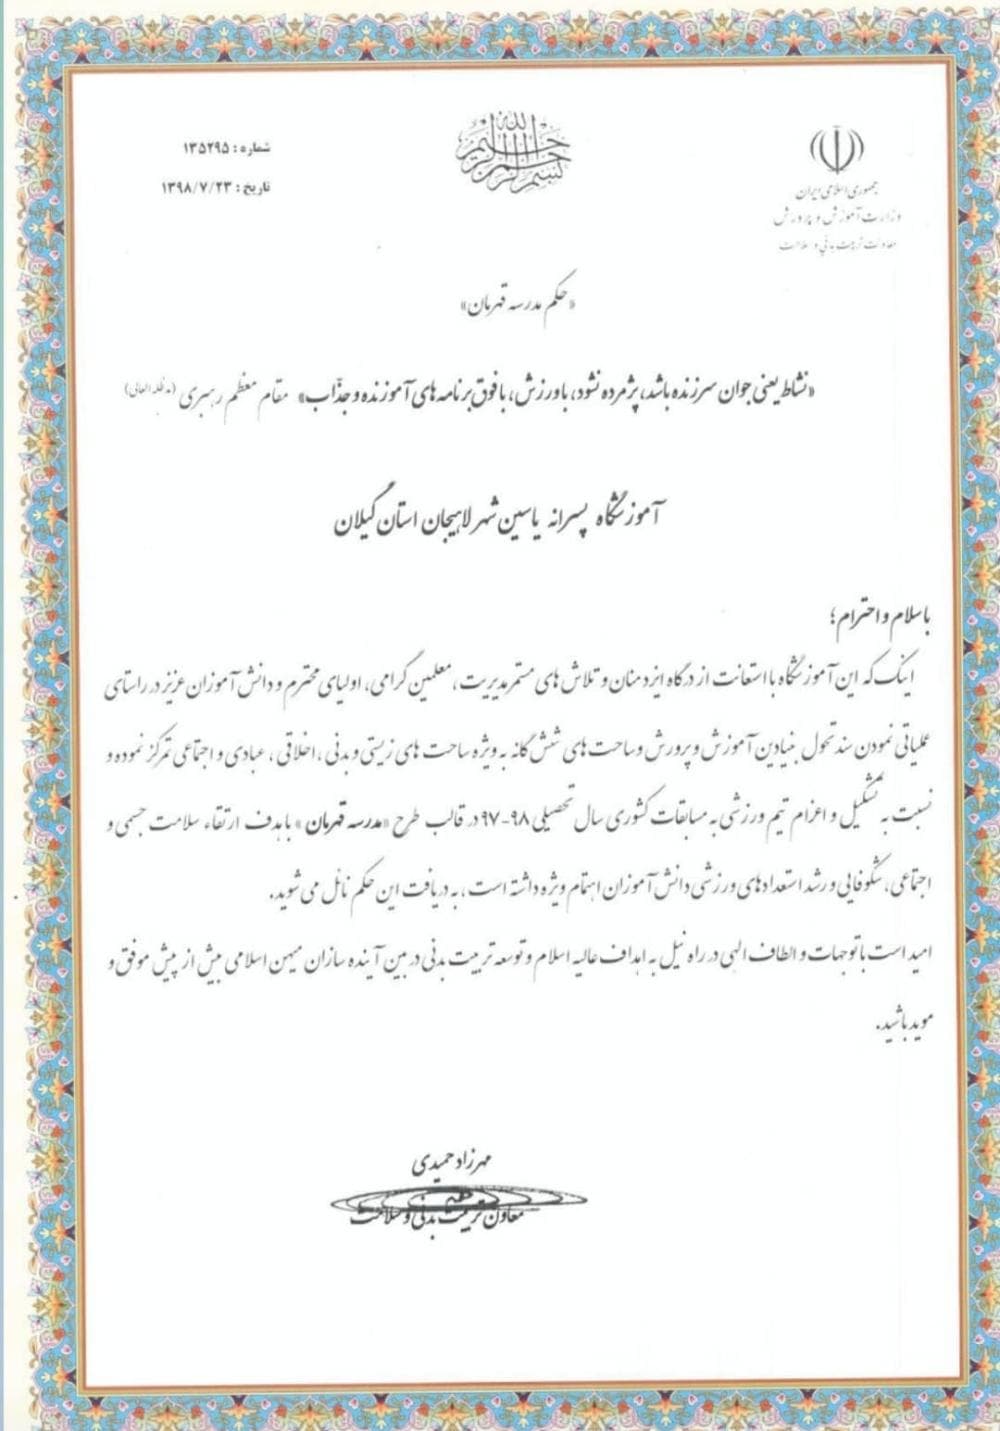 بسم الله الرحمن الرحیم
جمهوری اسلامی ایران
وزارت آموزش و پرورش
معاونت تربیت بدنی و سلامت
شماره : ۱۳۵۲۹۵
تاریخ : ۱۳۹۸/۷/۲۳
«حکم مدرسه قهرمان»
«نشاط یعنی جوان سرزنده باشد، پژمرده نشود، با ورزش، با فوق برنامه های آموزنده و جذّاب» مقام معظم رهبری (مدظله العالی)
آموزشگاه پسرانه یاسین شهر لاهیجان استان گیلان
با سلام و احترام؛
اینک که این آموزشگاه با استعانت از درگاه ایزد منان و تلاش های مستمر مدیریت، معلمین گرامی، اولیای محترم و دانش آموزان عزیز در راستای
عملیاتی نمودن سند تحول بنیادین آموزش و پرورش و ساحت های شش گانه به ویژه ساحت های زیستی و بدنی، اخلاقی، عبادی و اجتماعی تمرکز نموده و
نسبت به تشکیل و اعزام تیم ورزشی به مسابقات کشوری سال تحصیلی ۹۸-۹۷ در قالب طرح «مدرسه قهرمان» با هدف ارتقاء سلامت جسمی و
اجتماعی، شکوفایی و رشد استعدادهای ورزشی دانش آموزان اهتمام ویژه داشته است، به دریافت این حکم نائل می شوید.
امید است با توجهات و الطاف الهی در راه نیل به اهداف عالیه اسلام و توسعه تربیت بدنی در بین آینده سازان میهن اسلامی بیش از پیش موفق و
موید باشید.
مهرزاد حمیدی
معاون تربیت بدنی و سلامت